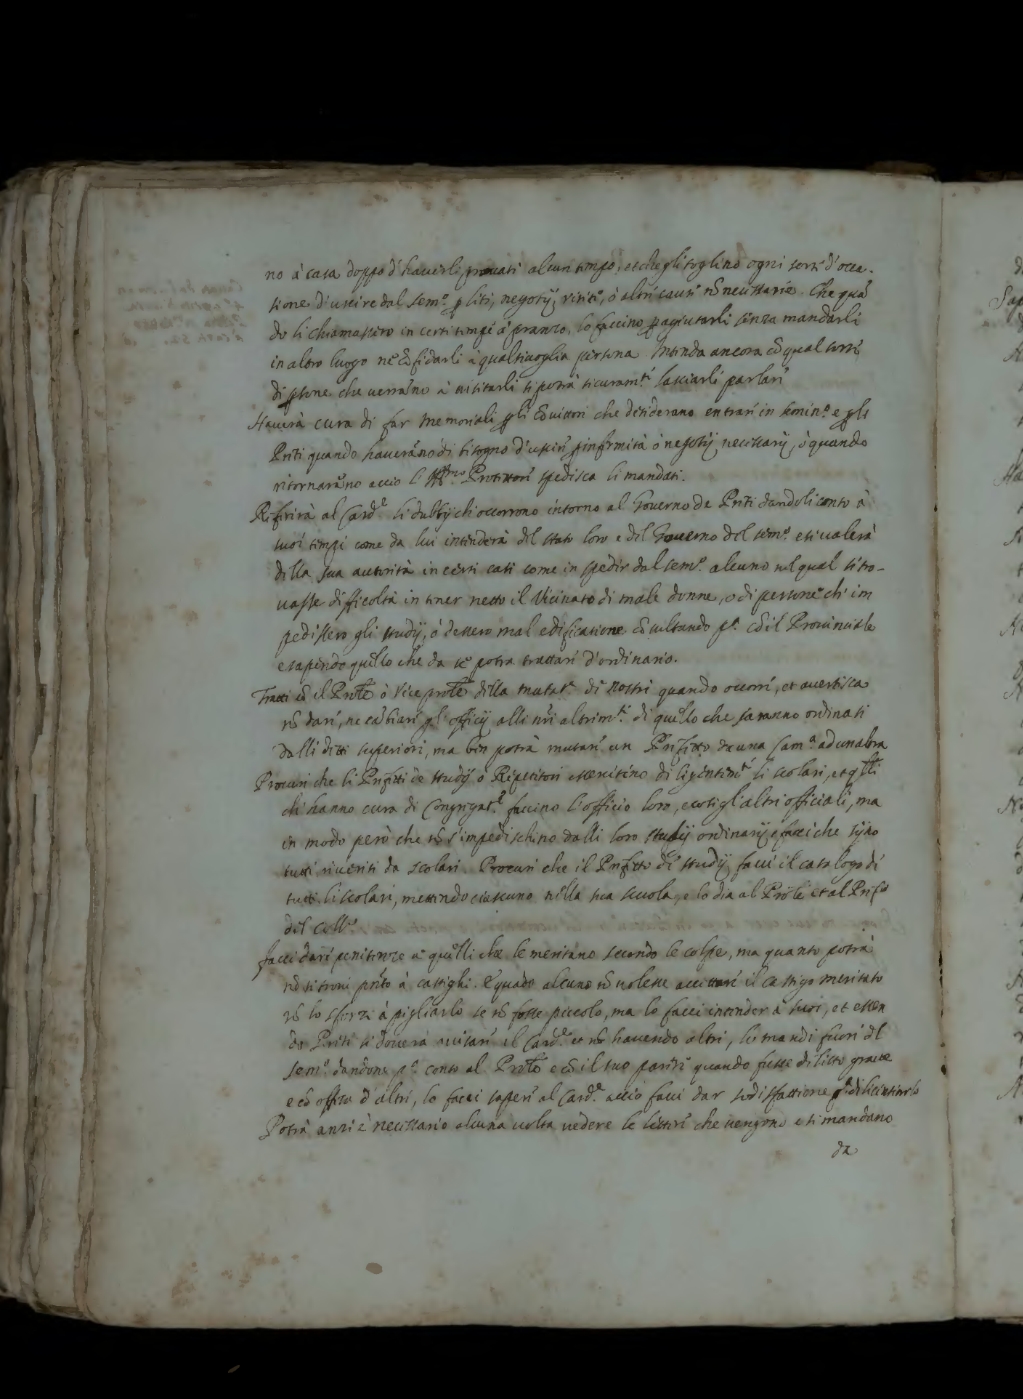 no à casa doppo d'haverli provati alcun tempo, et che gli toglino ogni sorte d'occa-
sione d'uscire dal sem.º p liti, negotij, visite, ò altri cause nõ necessarie. Che quã
do li chiamassero in certi tempi à pranzo, lo faccino p aggiutarli senza mandarli
in altro luogo ne cõfidarli à qualsivoglia persona Intenda ancora cõ qual sorte
di psone che verrãno à visitarli si potrà sicuram.te lasciarli parlare
Haverà cura di far memoriali p gli cõvittori che desiderano entrare in semin.º e p gli
Preti quando haverãno di bisogno d'uscire p infirmità ò negotij necessarij, ò quando
ritornarãno acciò l' Protettore spedisca li mandati.
Riferirà al Card.e li dubbij chi occorrono intorno al Governo de Preti dandoli conto à
suoi tempi come da lui intenderà del stato loro e del Governo del sem.º e si valerà
della sua autorità in certi casi come in spedir dal sem.º alcuno nel qual si tro-
vasse difficoltà in tener netto il Vicinato di male donne, ò di persone ch' im
pedissero gli studij, ò dessero mal edificatione cõsultando p.ª cõ il Provinciale
e sapendo quello che da se potra trattare d'ordinario.
Tratti cõ il Prõle ò Viceprõle della mutat.e di Nostri quando occorre, et avertisca
nõ dare, ne cãbiare gl' officij alli nri altrim.ti di quello che saranno ordinati
dalli detti superiori, ma ben potrà mutare un Prefetto da una Cam.ª ad un'altra
Procuri che li Prefetti de studij ò Ripetitori essercitino diligentem.te li scolari, et qlli
chi hanno cura di Congregat.e faccino l'officio loro, e cosi gl'altri officiali, ma
in modo però che nõ s'impedischino dalli loro studij ordinarij, e facci che sijno
tutti riveriti da scolari. Procuri che il Prefetto de studij facci il catalogo di
tutti li scolari, mettendo ciascuno nella sua scuola, e lo dia al Prõle et al Pref.º
del coll.º
facci dare penitenze à quelli che le meritano secondo le colpe, ma quanto potrà
nõ si trovi pñte à castighi. E quãdo alcuno nõ volesse accettare il castigo meritato
nõ lo sforzi à pigliarlo se nõ fosse piccolo, ma lo facci intender à suoi, et essen
do Preti si doverà avisare il Card.e e nõ havendo altri, li mandi fuori del
sem.º dandone p.ª conto al Prõle e cõ il suo parere quando fusse delitto grave
e cõ offesa d'altri, lo facci sapere al Card.e acciò facci dar sodisfattione p.ª di licentiarlo
Potrà anzi è necessario alcuna volta vedere le lettere che vengono e si mandano
da